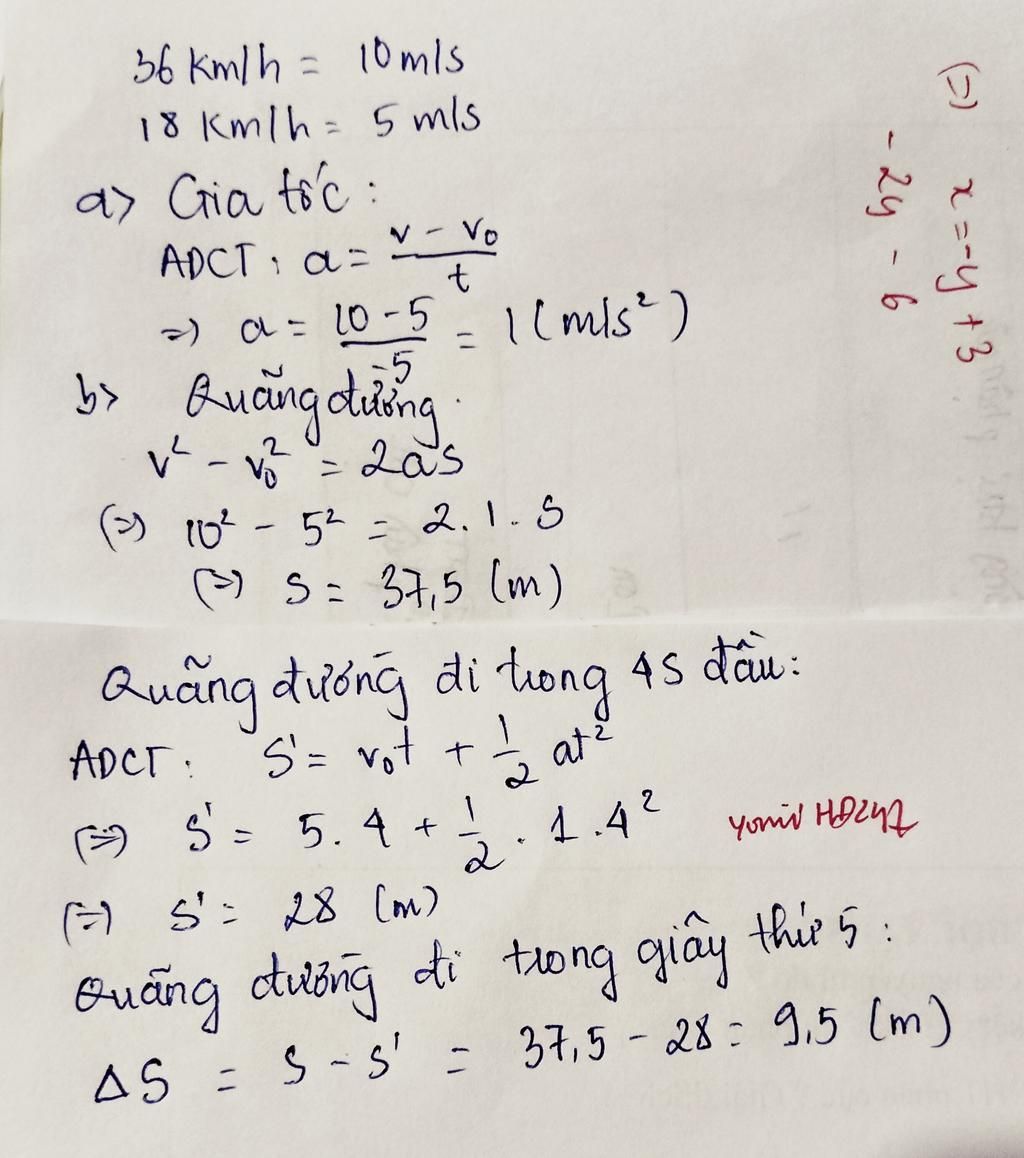 36 km/h = 10 m/s
18 Km/h = 5 m/s
a> Gia tốc:
ADCT: a = (v - v₀)/t
=> a = (10 - 5)/5 = 1 (m/s²)
b> Quãng đường
v² - v₀² = 2as
(=) 10² - 5² = 2.1.S
(=) S = 37,5 (m)
Quãng đường đi trong 4s đầu:
ADCT: S' = v₀t + 1/2 at²
(=) S' = 5.4 + 1/2 . 1.4²
(=) S' = 28 (m)
Quãng đường đi trong giây thứ 5:
ΔS = S - S' = 37,5 - 28 = 9,5 (m)
(=) x = -y + 3
- 2y - 6